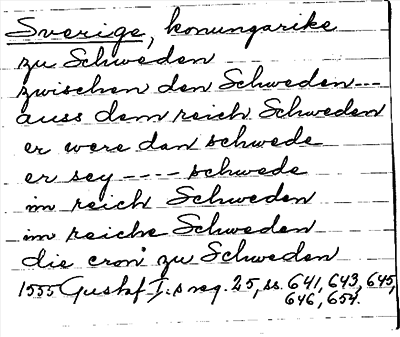 Sverige, konungarike
zu Schweden
zwischen den Schweden---
auss dem reich Schweden
er were dan schwede
er sey ---- schwede
im reich Schweden
im reiche Schweden
die cron zu Schweden
1555 Gustaf I:s reg. 25, ss. 641, 643, 645,
646, 654.